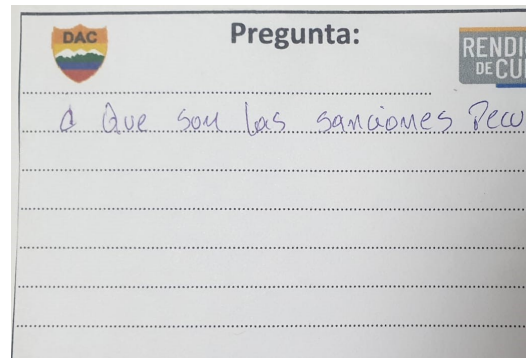 DAC
Pregunta:
RENDI
DE CU
¿ Que son las sanciones Pecu